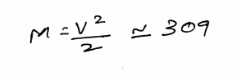 M = V²/2 ≃ 309